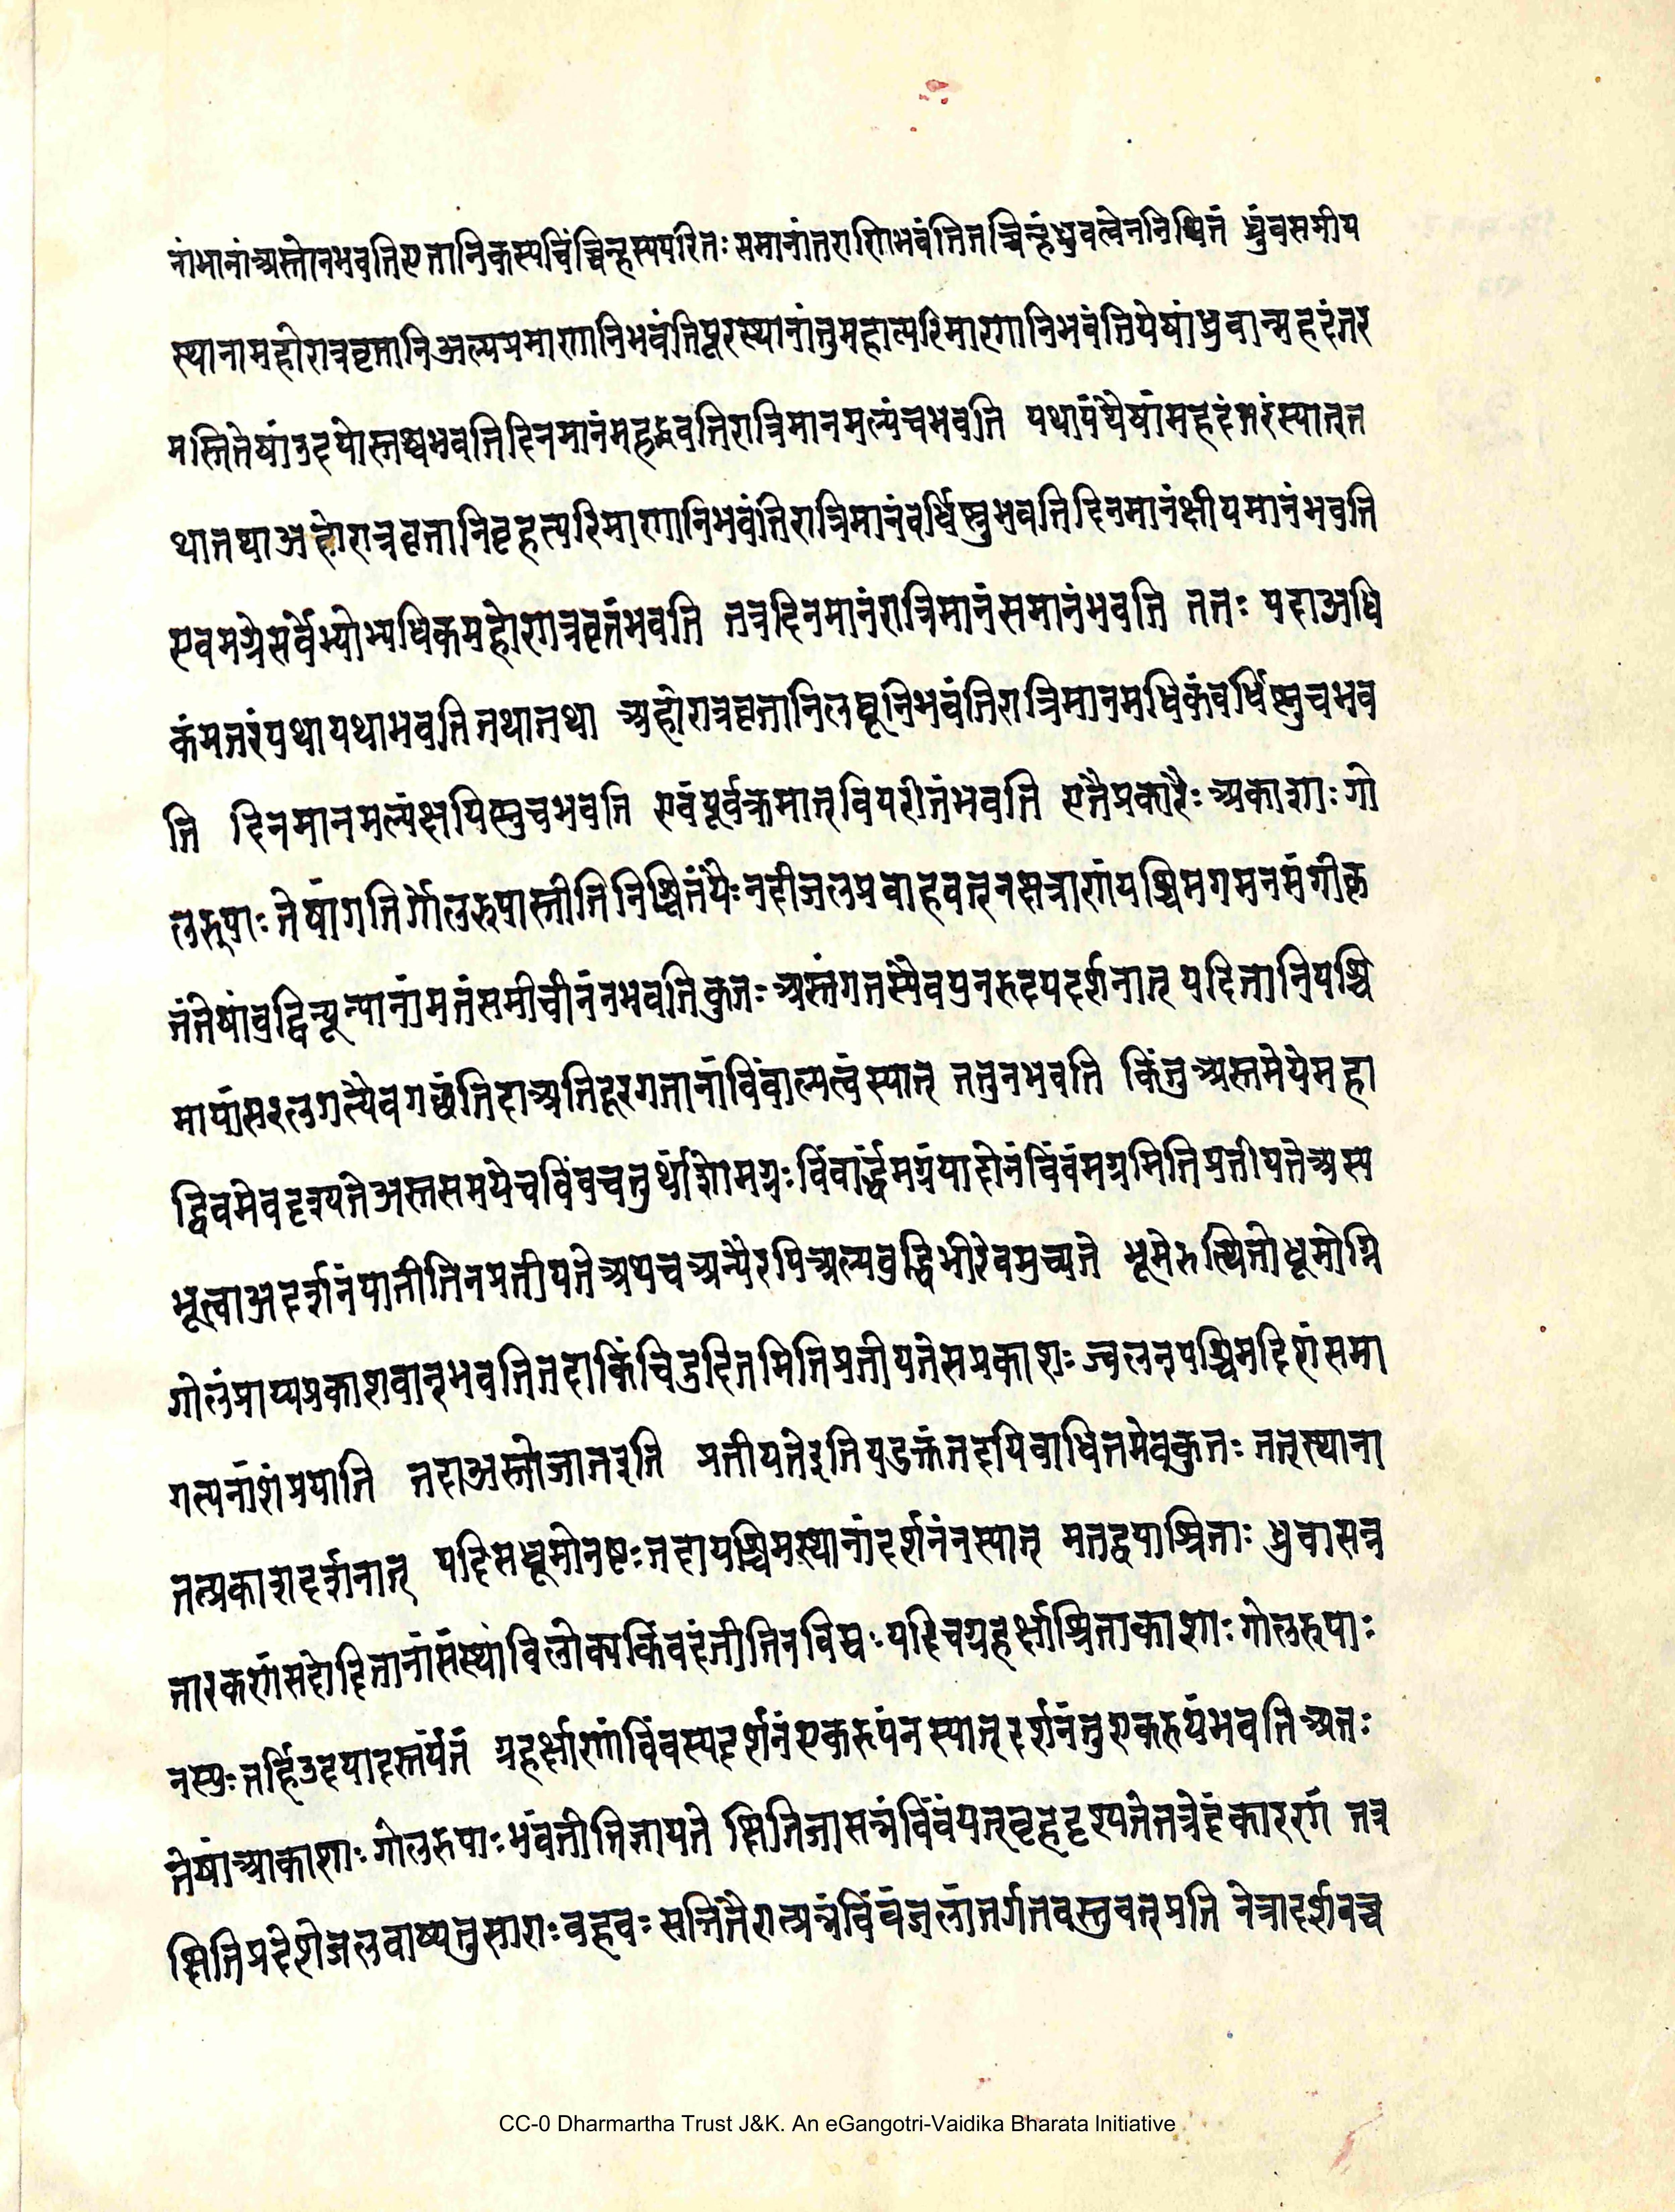 नांभानांअस्तोनभवतिएतानिकस्यचिंच्चिन्हस्यपरितः समानांतराणिभवंतितच्चिन्हंध्रुवत्वेननिश्चितं ध्रुवसमीप
स्थानामहोरात्रवृत्तानिअल्पप्रमाणानिभवंतिदूरस्थानांतुमहात्परिमाणानिभवंतियेषांध्रुवान्महदंतर
मस्तितेषांउदयोस्तश्चभवतिदिनमानंमहद्भवतिरात्रिमानमल्पंचभवति यथायंथैषांमहदंतरंस्यात्त
थातथाअहोरात्रवृत्तानिबृहत्परिमाणानिभवंतिरात्रिमानंवर्धिष्णुभवतिदिनमानंक्षीयमानंभवति
एवमग्रेसर्वेभ्योभ्यधिकमहोरात्रवृत्तंभवति तत्रदिनमानंरात्रिमानंसमानंभवति ततः यदाअधि
कंमतरंयथायथाभवतितथातथा अहोरात्रवृत्तानिलघूनिभवंतिरात्रिमानमधिकंवर्धिष्णुचभव
ति दिनमानमल्पंक्षयिष्णुचभवति एवंपूर्वक्रमात्विपरीतंभवति एतैप्रकारैः अकाशाः गो
लरुपाः तेषांगतिर्गोलरुपास्तीतिनिश्चितंयैः नदीजलप्रवाहवत्नक्षत्राणांपश्चिमगमनमंगीकृ
तंतेषांबुद्धिन्यून्यानांमतंसमीचीनंनभवतिकुतः अस्तंगतस्यैवपुनरुदयदर्शनात् यदितानिपश्चि
मायांसरलगत्यैवगछंतिदाअतिदूरगतानांविंबाल्पत्वंस्यात् तत्तुनभवति किंतुअस्तमेयेमहा
द्विवमेवदृश्यतेअस्तसमयेचविंबचतुर्थांशोमग्नः विंबार्द्धमग्नंपादोनंविंबंमग्नमितिप्रतीयतेअस्प
भूत्वाअदर्शनंयातीतिनप्रतीयतेअथचअन्यैरपिअल्पबुद्धिभीरेवमुच्यते भूमेरुत्थितोधूमोग्नि
गोलंप्राप्यप्रकाशवान्भवतितदाकिंचिदुदितमितिप्रतीयतेसप्रकाशः ज्वलन्पश्चिमदिशंसमा
गत्यनाशंप्रयाति तदाअस्तोजातइति प्रतीयतेइतियदुक्तंतदपिबाधितमेवकुतः तत्रस्थाना
तत्प्रकाशदर्शनात् यदिसधूमोनष्टः तदापश्चिमस्थानांदर्शनंनस्यात् मतद्वयाश्रिताः ध्रुवासन्न
तारकाणांसदोदितानांसंस्थांविलोक्यकिंवदंतीतिनविद्मः यदिचग्रहर्क्षाश्रिताकाशाः गोलरुपाः
नस्युः तर्हिउदयादस्तंर्यतं ग्रहर्क्षाणांविंबस्यदर्शनंएकरुपंनस्यात्दर्शनंतुएकरुपंभवतिअतः
तेषांआकाशाः गोलरुपाः भवंतीतिज्ञायते क्षितिजासन्नंविंबंयत्बृहद्दृश्यतेतत्रेदंकारणं तत्र
क्षितिप्रदेशेजलबाष्पतुसाराः बहवः सन्तितैरात्प्रन्नंविंबंजलांतर्गतवस्तुवत्प्रति नेत्रादर्शवच्च
CC-0 Dharmartha Trust J&K. An eGangotri-Vaidika Bharata Initiative